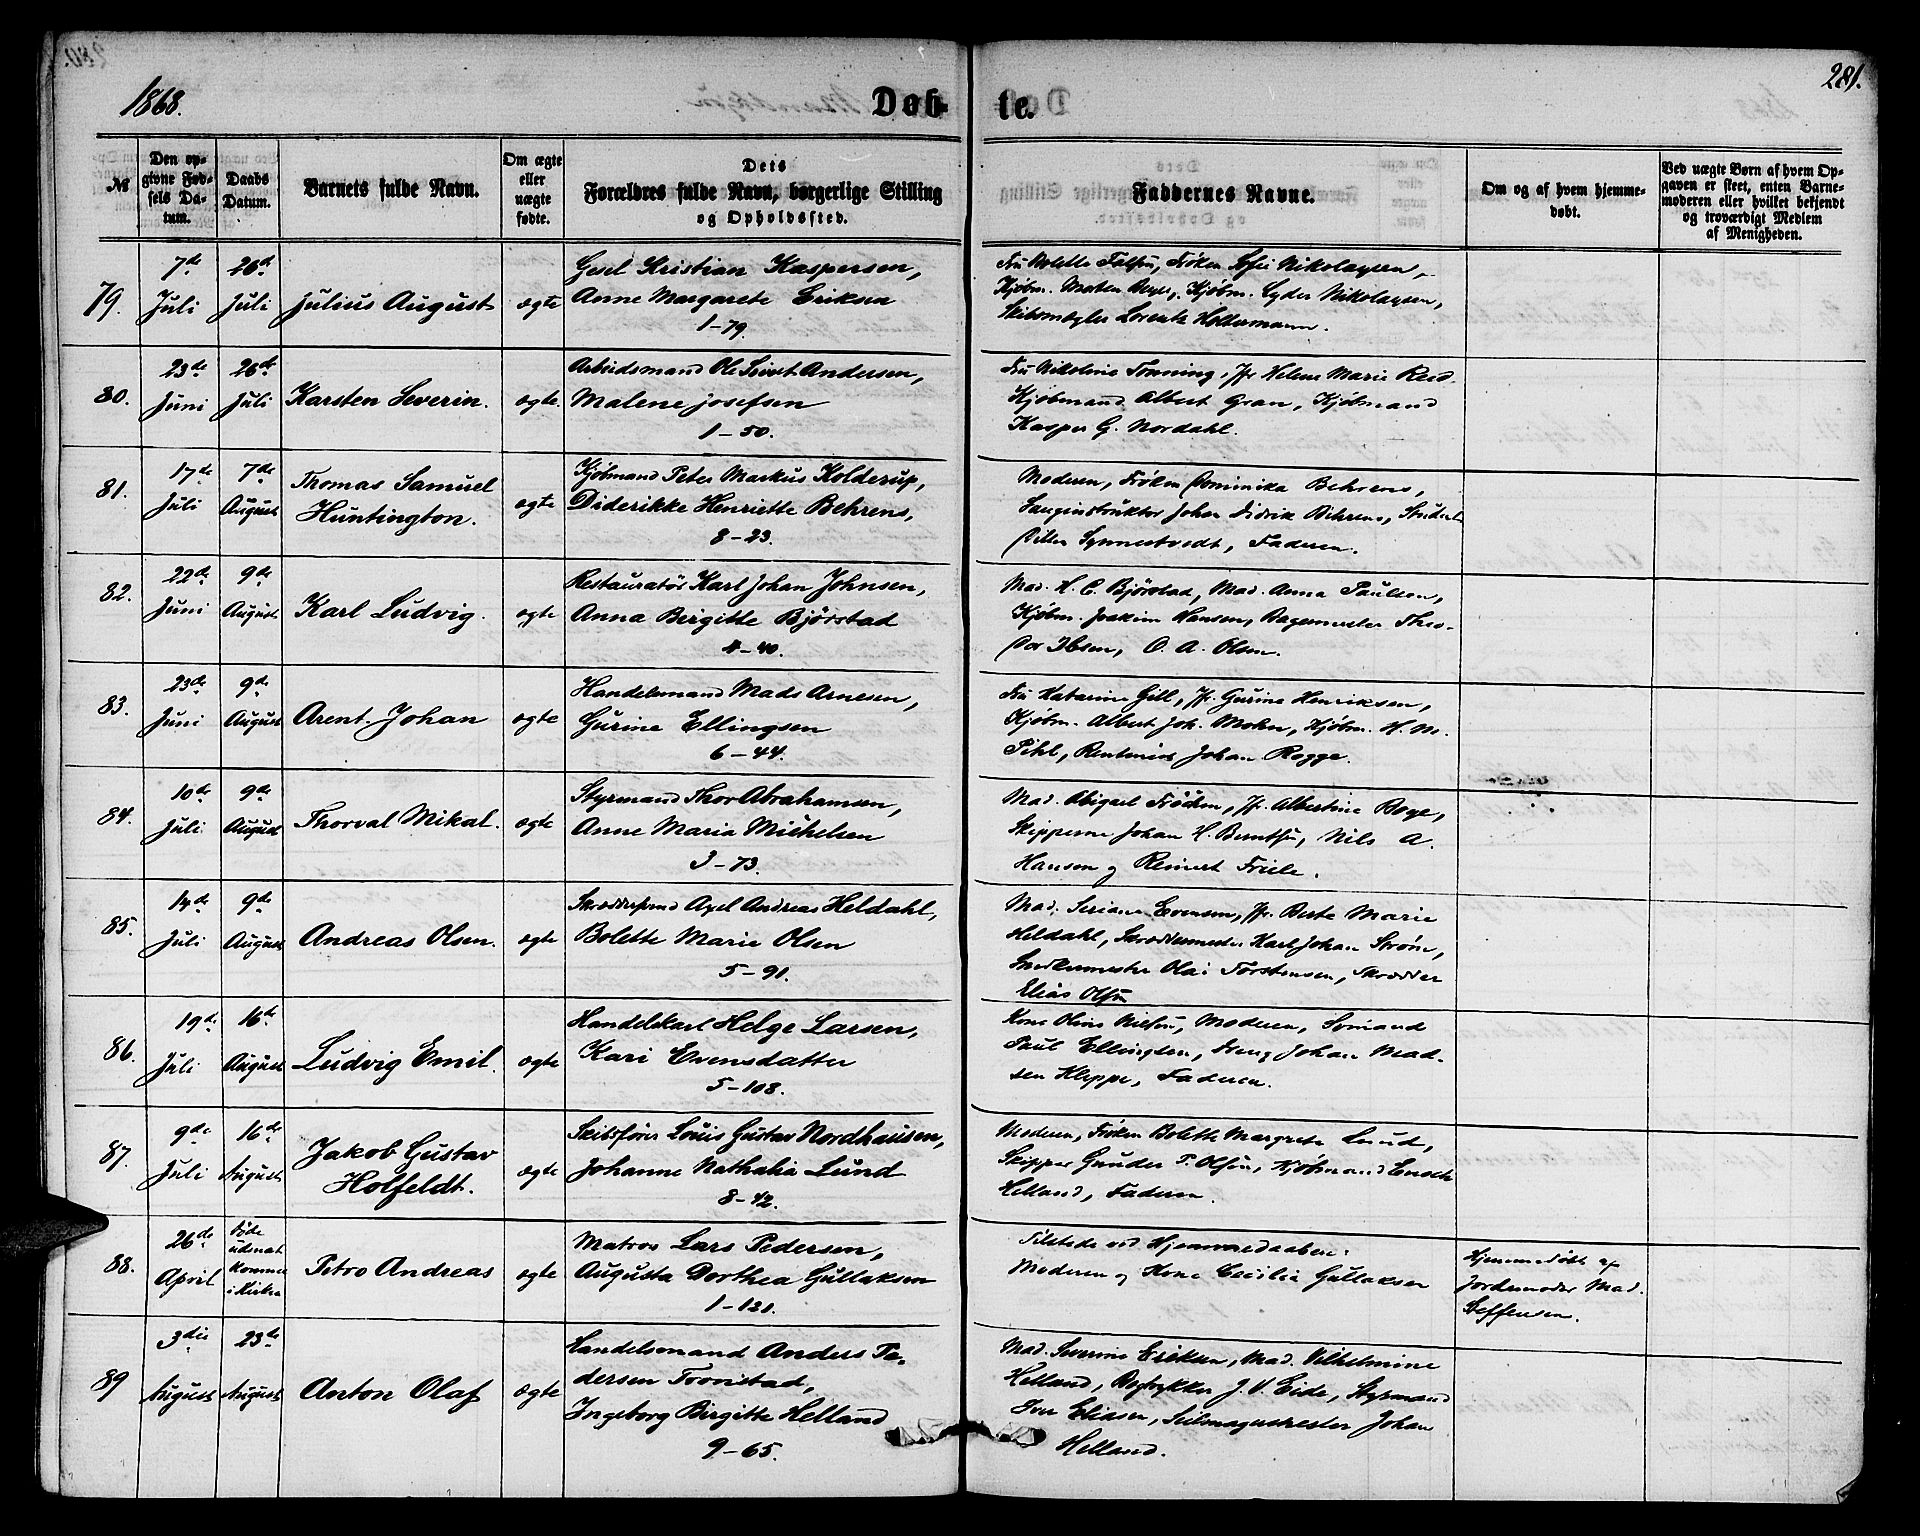 281.
1868.
Døb-
te.
№
Den op-
givne Fød-
sels Da-
tum.
Daabs
Datum.
Barnets fulde Navn.
Om ægte
eller
uægte
fødte.
Dets
Forældres fulde Navn, borgerlige Stilling
og Opholdssted.
Faddernes Navne.
Om og af hvem hjemme-
døbt.
Ved uægte Børn af hvem Op-
gaven er skeet, enten Barne-
moderen eller hvilket bekjendt
og troværdigt Medlem
af Menigheden.
79.
7de
Juli
26de
Juli
Julius August
ægte
Gesel Kristian Kaspersen,
Anne Margarete Eriksen
1-79.
Fru Bolette Falsen, Frøken Sofie Nikolaysen,
Kjøbm. Morten Beyer, Kjøbm. Lyder Nikolaysen,
Skibsmægler Lorentz Holtermann.
80.
23de
Juni
26de
Juli
Karsten Severin.
ægte.
Arbeidsmand Ole Sivert Andersen,
Malene Josefsen
1-50.
Fru Nikoline Tonning, Jfr Helene Marie Reid.
Kjøbmand Albert Gran, Kjøbmand
Kasper G. Nordahl.
81.
17de
Juli
7de
August
Thomas Samuel
Huntington.
ægte
Kjøbmand Peter Markus Kolderup,
Diderikke Henriette Behrens,
8-23.
Moderen, Frøken Dominika Behrens,
Sanginstruktør Johan Didrik Behrens, Student
Ditlev Synnestvedt, Faderen.
82.
22de
Juni
9de
August
Karl Ludvig.
ægte
Restauratør Karl Johan Johnsen,
Anna Birgitte Bjørstad
4-40.
Mad. H. C. Bjørstad, Mad. Anna Paulsen,
Kjøbm. Joakim Hansen, Bagermester Theo-
dor Ibsen, O. A. Olsen.
83.
23de
Juni
9de
August
Arent Johan
ægte
Handelsmand Mads Arnesen,
Gurine Ellingsen
6-44.
Fru Katarine Gill, Jfr. Gurine Henriksen,
Kjøbm. Albert Joh. Mohn, Kjøbm. H. M.
Pihl, Rentenist Johan Rogge.
84.
10de
Juli
9de
August
Thorval Mikal.
ægte
Styrmand Thor Abrahamsen,
Anne Maria Michelsen
3-73.
Mad. Abigael Frøchen, Jfr. Albertine Boge,
Skipperne Johan H. Berntsen, Nils A.
Hansen og Reinert Friele.
85.
14de
Juli
9de
August
Andreas Olsen.
ægte
Skræddersvend Axel Andreas Heldahl,
Bolette Marie Olsen
5-91.
Mad. Seriane Evensen, Jfr. Berte Marie
Heldahl, Skræddermester Karl Johan Strøm,
Snedkermester Olai Torstensen, Skrædder
Elias Olsen
86.
19de
Juli
16de
August
Ludvig Emil.
ægte
Handelskarl Helge Larsen,
Kari Evensdatter
5-108.
Kone Oline Nilsen, Moderen, Sømand
Paul Ellingsen, Dreng Johan Mad-
sen Kleppe, Faderen.
87.
9de
Juli
16de
August
Jakob Gustav
Holfeldt.
ægte
Skibsfører Louis Gustav Nordhausen,
Johanne Nathalia Lund
8-42.
Moderen, Frøken Bolette Margrete Lund,
Skipper Gunder P. Olsen, Kjøbmand Enoch
Helland, Faderen.
88.
26de
April
Døde
uden at
komme
i Kirken
Petro Andreas
ægte
Matros Lars Pedersen,
Augusta Dorthea Gullaksen
1-121.
Tilstede ved Hjemmedaaben:
Moderen og Kone Cecilia Gullaksen
Hjemmedøbt af
Jordemoder Mad.
Steffensen.
89
3die
August
23de
August
Anton Olaf
ægte
Handelsmand Anders Pe-
dersen Tronstad,
Ingeborg Birgitte Helland
9-65.
Mad. Severine Eriksen, Mad. Vilhelmine
Helland, Bogtrykker J. V. Eide, Styrmand
Iver Eliasen, Seilmagermester Johan
Helland.